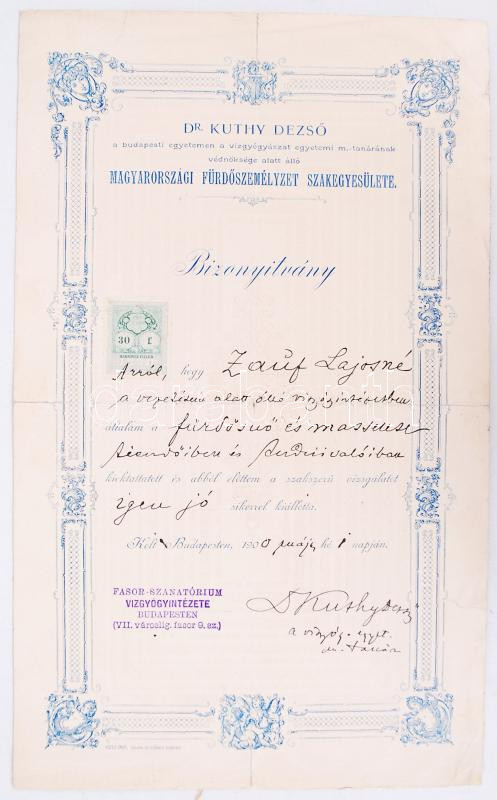 DR. KUTHY DEZSŐ
a budapesti egyetemen a vizgyógyászat egyetemi m.-tanárának
védnöksége alatt álló
MAGYARORSZÁGI FÜRDŐSZEMÉLYZET SZAKEGYESÜLETE.
Bizonyitvány
30 f
Arról, hogy Zauf Lajosné
a vezetésem alatt álló vizgyógyintézetben
általam a fürdősnő és
teendőiben és
kioktattatott és abból előttem a szakszerü vizsgálatot
igen jó sikerrel kiállotta.
Kelt Budapesten, 190 hó 1 napján.
FASOR-SZANATÓRIUM
VIZGYÓGYINTÉZETE
BUDAPESTEN
(VII. városlig. fasor 9. sz.)
Dr Kuthy Dezső
a vizgyóg. egyet.
m. tanára